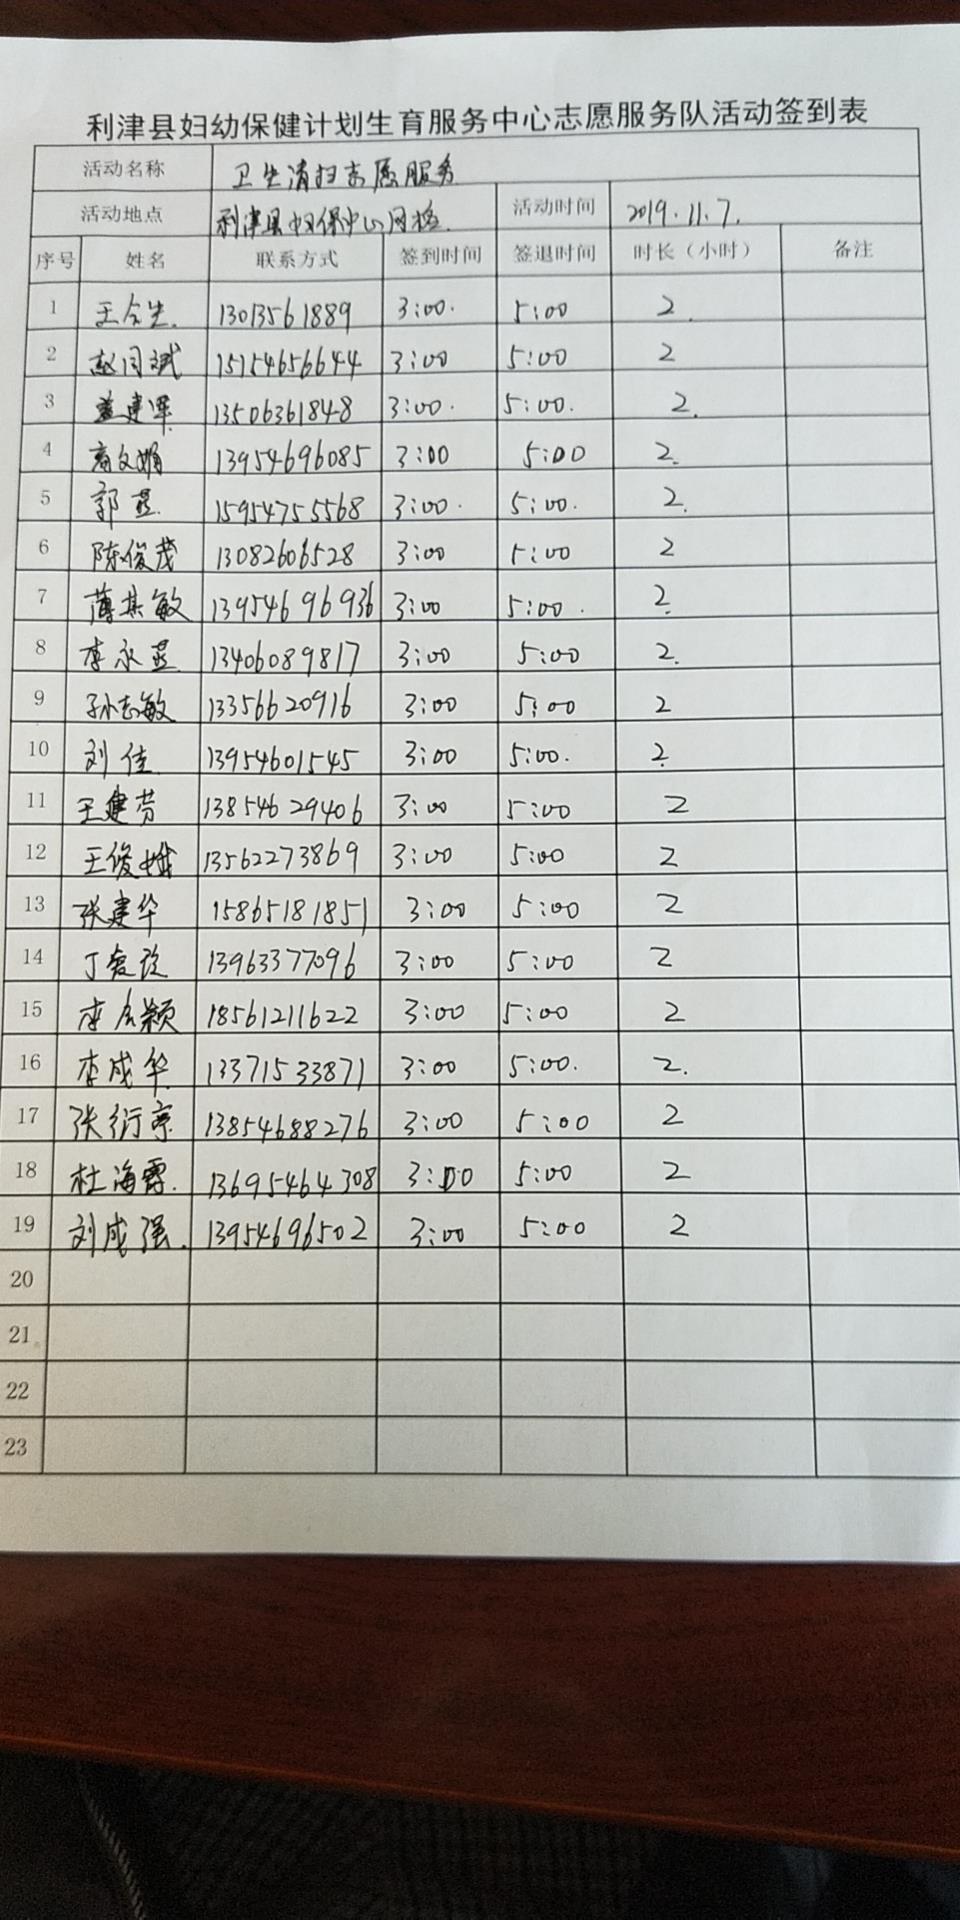 利津县妇幼保健计划生育服务中心志愿服务队活动签到表
活动名称 卫生清扫志愿服务
活动地点 利津县妇保中心网格. 活动时间 2019.11.7.
序号 姓名 联系方式 签到时间 签退时间 时长（小时） 备注
1 王全生. 13013561889 3:00. 5:00 2.
2 赵同斌 15154656644 3:00 5:00 2
3 盖建军. 13506361848 3:00. 5:00. 2.
4 高文娟 13954696085 3:00 5:00 2.
5 郭燕. 15954755568 3:00. 5:00. 2.
6 陈俊茂 13082606528 3:00 5:00 2
7 薄其敏 13954696936 3:00 5:00. 2.
8 李永燕. 13406089817 3:00 5:00 2.
9 孙志敏 13356620916 3:00 5:00 2
10 刘佳. 13954601545 3:00 5:00. 2.
11 王建芳 13854629406 3:00 5:00 2
12 王俊 13562273869 3:00 5:00 2
13 张建华 15865181851 3:00 5:00 2
14 丁 13963377096 3:00 5:00 2
15 李 颖 18561211622 3:00 5:00 2
16 李成华. 13371533871 3:00 5:00. 2.
17 张衍亭 13854688276 3:00 5:00 2
18 杜海霞. 13695464308 3:00 5:00 2
19 刘成强. 13954696502 3:00 5:00 2
20
21
22
23